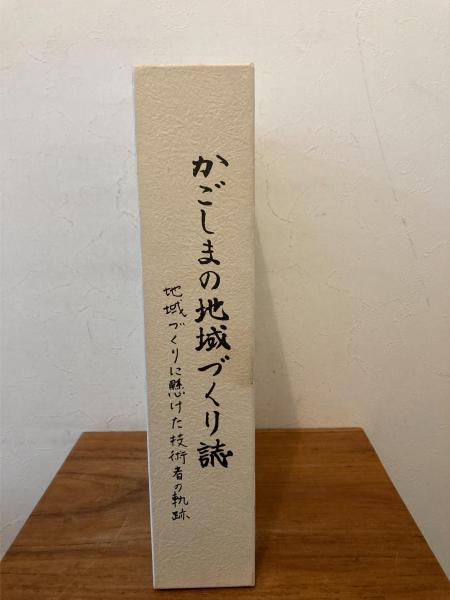 かごしまの地域づくり誌
地域づくりに懸けた技術者の軌跡